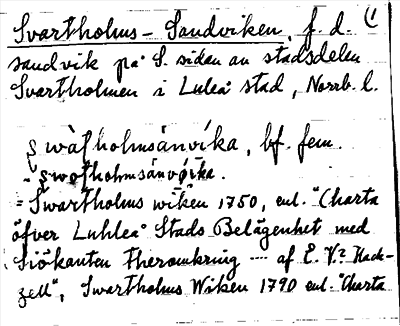 Svartholms-Sandviken, f. d. (1
sandvik på S. sidan av stadsdelen
Svartholmen i Luleå stad, Norrb. l.
bf. fem.
= Swartholms wiken 1750, enl. "Charta
öfver Luhleå Stads Belägenhet med
Siökanten theromkring ---- af E. V:
zell", Swartholms Wiken 1790 enl. "Charta